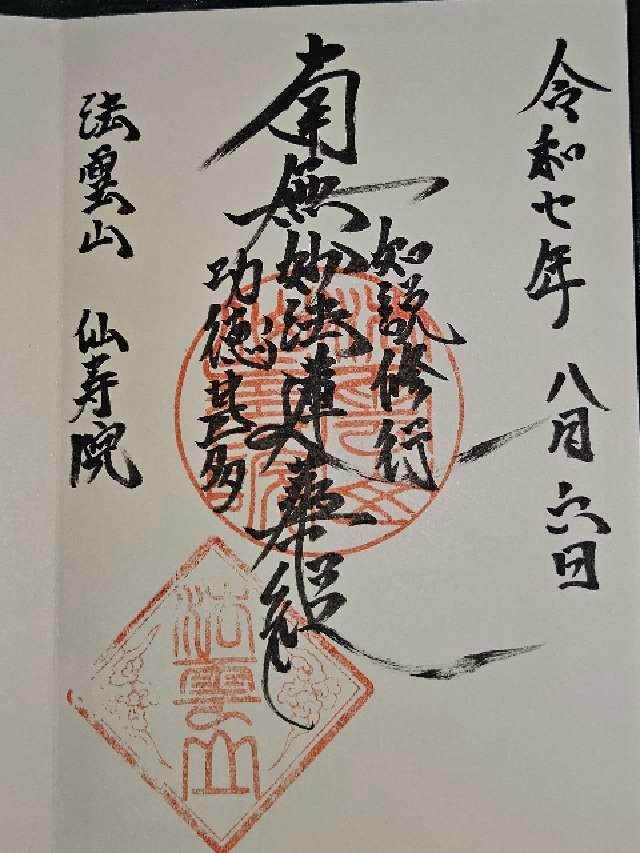 令和七年 八月 六日
如説修行
南無妙法蓮華経
功徳甚多
法雲山 仙寿院
法雲山